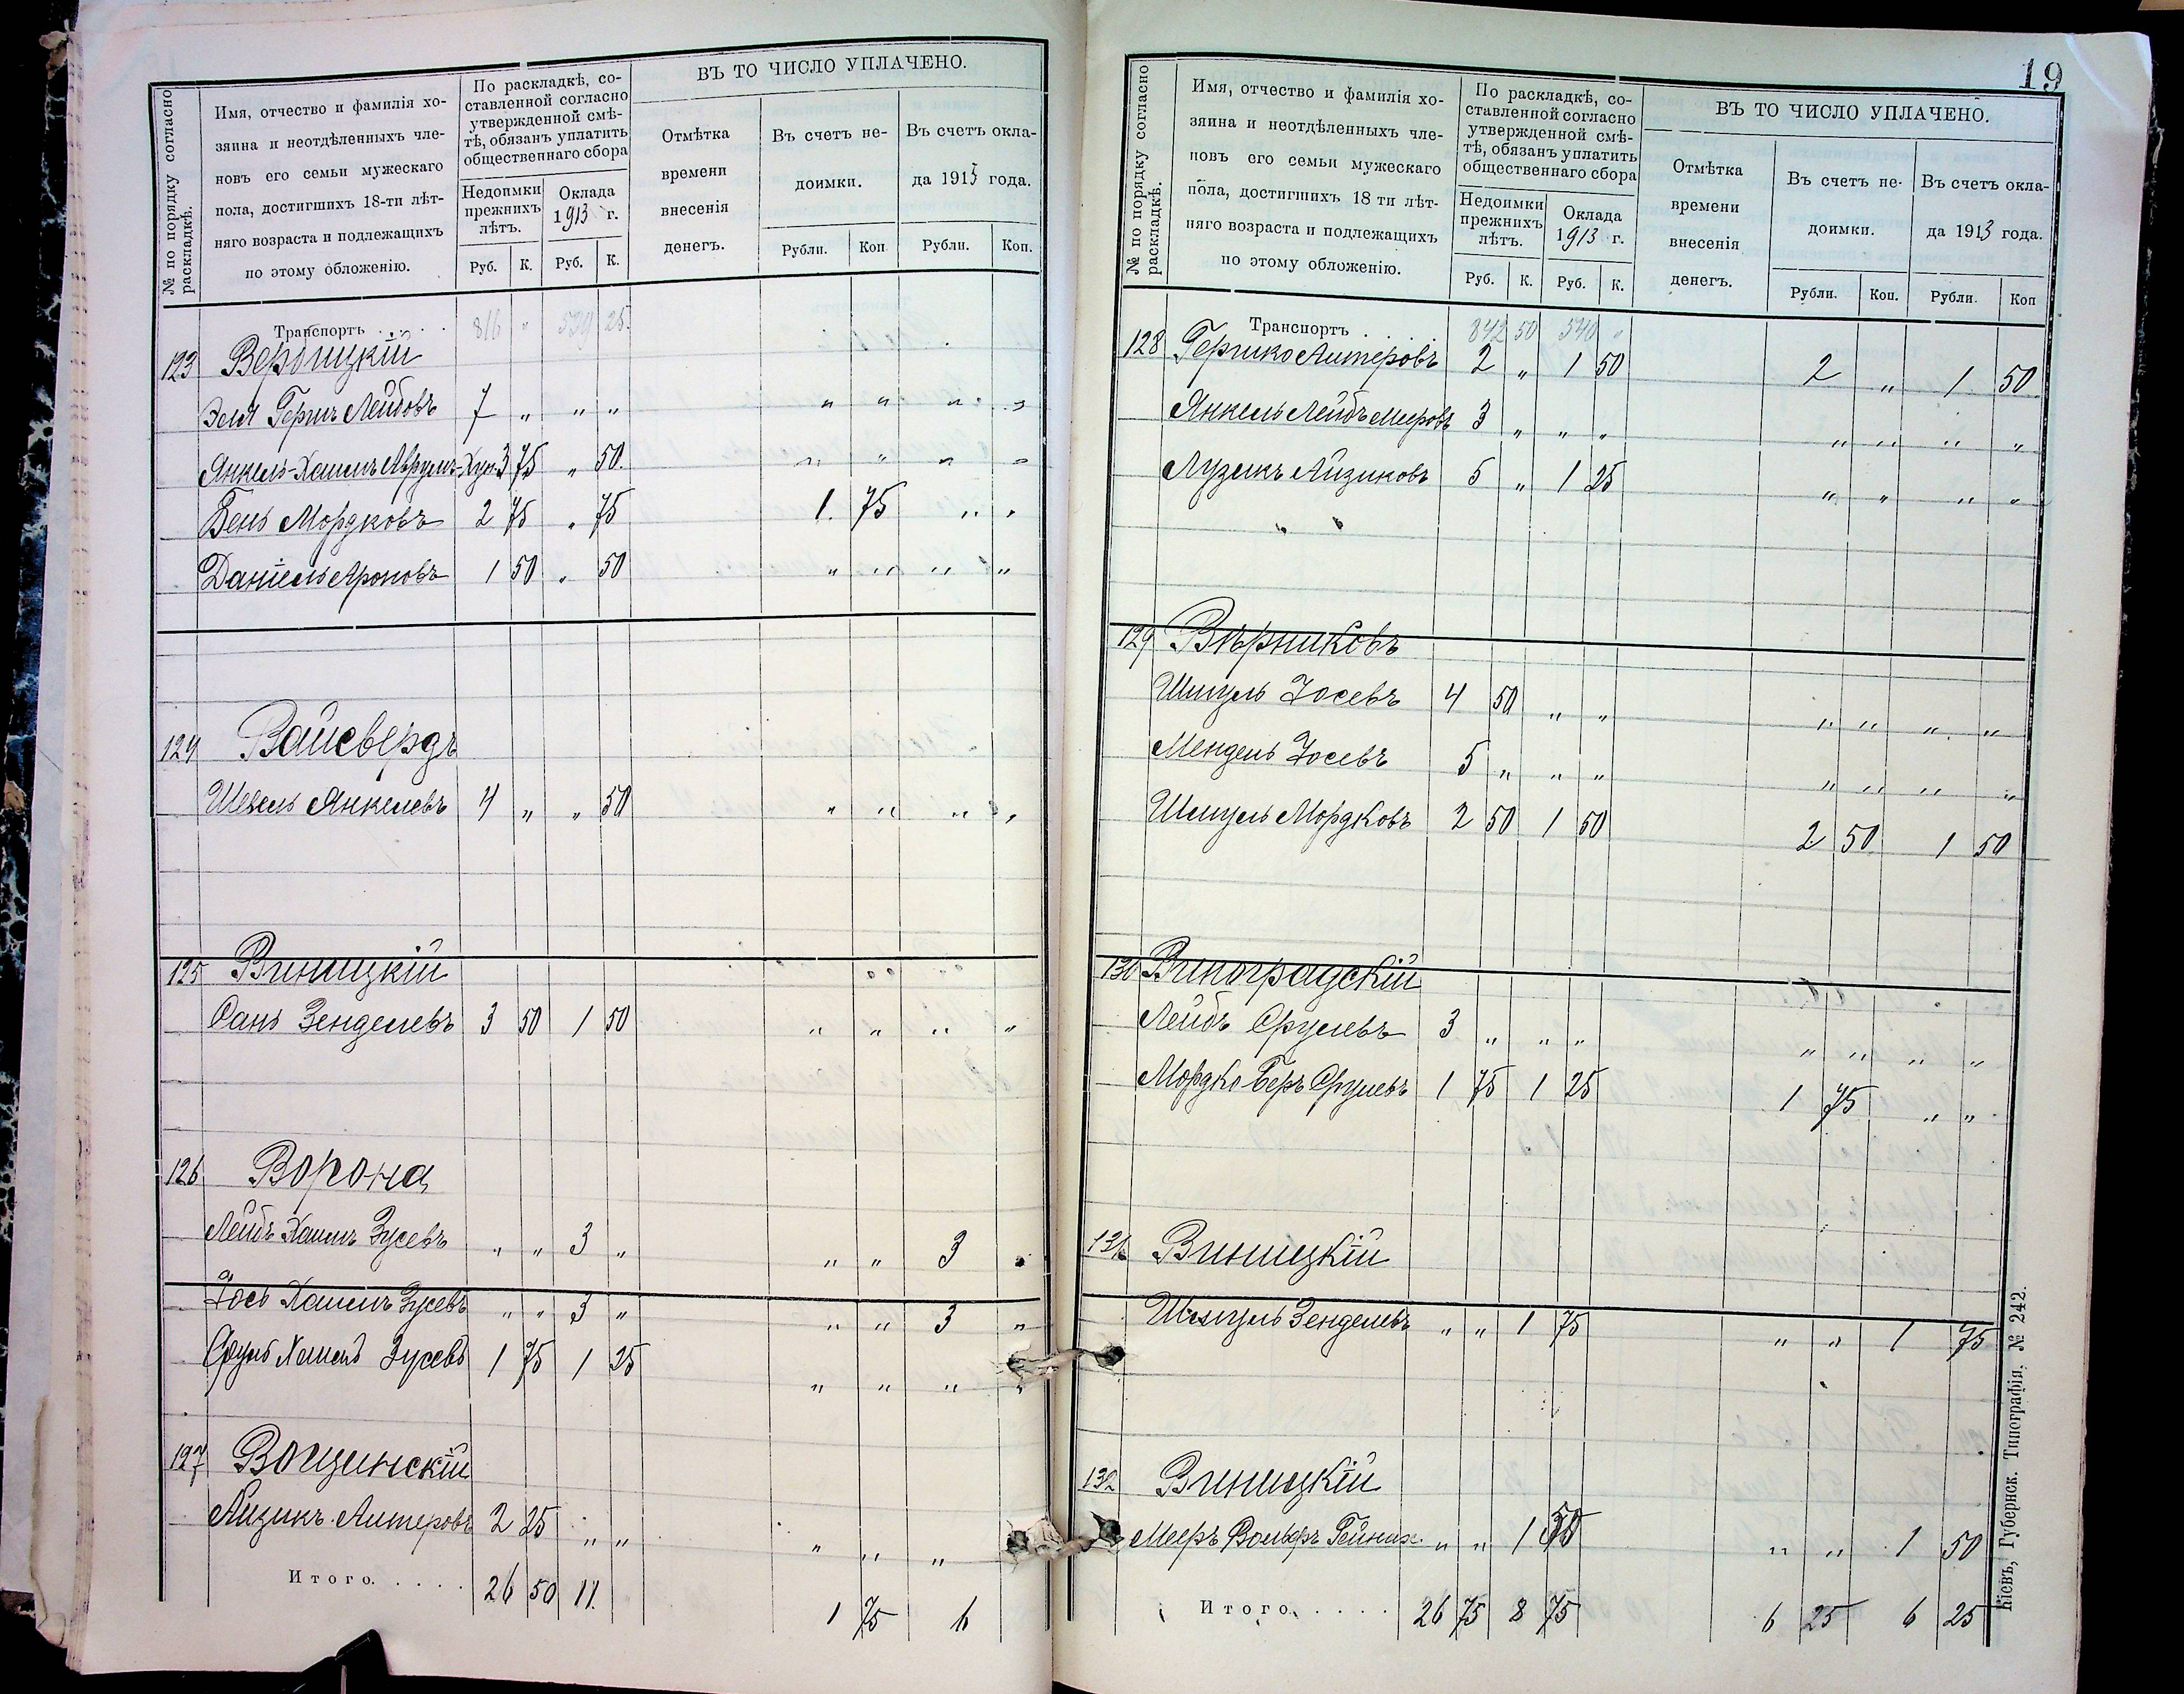 № по порядку согласно раскладкѣ.
Имя, отчество и фамилія хо-
зяина и неотдѣленныхъ чле-
новъ его семьи мужескаго
пола, достигшихъ 18-ти лѣт-
няго возраста и подлежащихъ
по этому обложенію.
По раскладкѣ, со-
ставленной согласно
утвержденной смѣ-
тѣ, обязанъ уплатить
общественнаго сбора
Недоимки прежнихъ лѣтъ.
Оклада 1913 г.
Руб. К. Руб. К.
ВЪ ТО ЧИСЛО УПЛАЧЕНО.
Отмѣтка
времени
внесенія
денегъ.
Въ счетъ не-
доимки.
Рубли. Коп
Въ счетъ окла-
да 1913 года.
Рубли. Коп.
Транспортъ . . . . 816 " 539 25.
123
Эля Гершъ Лейбовъ 7 " " " " " " "
Янкель-Хаимъ Аврумъ- 3 75 " 50. " " " "
Бень Мордковъ 2 75 " 75 1. 75 " "
Даніель Ароновъ 1 50 " 50 " " " "
124 Вайсвердъ
Шевель Янкелевъ 4 " " 50 " " " "
125 Виницкій
Санъ Зенделевъ 3 50 1 50 " " " "
126 Ворона
Лейбъ Хаимъ Зусевъ " " 3 " " " 3 "
Іось Хаимъ Зусевъ " " 3 " " " 3 "
Сруль Хаимъ Зусевъ 1 75 1 25 " " " "
127 Вощинскій
Айзикъ Литеровъ 2 25 " " " " "
Итого. . . . . 26 50 11. 1 75 6
19
№ по порядку согласно раскладкѣ.
Имя, отчество и фамилія хо-
зяина и неотдѣленныхъ чле-
новъ его семьи мужескаго
пола, достигшихъ 18 ти лѣт-
няго возраста и подлежащихъ
по этому обложенію.
По раскладкѣ, со-
ставленной согласно
утвержденной смѣ-
тѣ, обязанъ уплатить
общественнаго сбора
Недоимки прежнихъ лѣтъ.
Оклада 1913 г.
Руб. К. Руб. К.
ВЪ ТО ЧИСЛО УПЛАЧЕНО.
Отмѣтка
времени
внесенія
денегъ.
Въ счетъ не-
доимки.
Рубли. Коп.
Въ счетъ окла-
да 1913 года.
Рубли. Коп
Транспортъ . . . . 842 50 540 "
128 Гершко Литеровъ 2 " 1 50 2 " 1 50
Янкель Лейбъ Мееровъ 3 " " " " " " "
Лузикъ Айзиковъ 5 " 1 25 " " " "
129 Вѣрниковъ
Шмуль Іосевъ 4 50 " " " " " "
Мендель Іосевъ 5 " " " " " " "
Шмуль Мордковъ 2 50 1 50 2 50 1 50
130 Виноградскій
Лейбъ Срулевъ 3 " " " " " " "
Мордко Беръ Срулевъ 1 75 1 25 1 75 " "
131 Виницкій
Шмуль Зенделевъ " " 1 75 " " 1 75
132 Виницкій
Мееръ Вольфъ Гейнах. " " 1 50 " " 1 50
Итого. . . . . 26 75 8 75 6 25 6 25
Кіевъ, Губернск. Типографія. № 242.